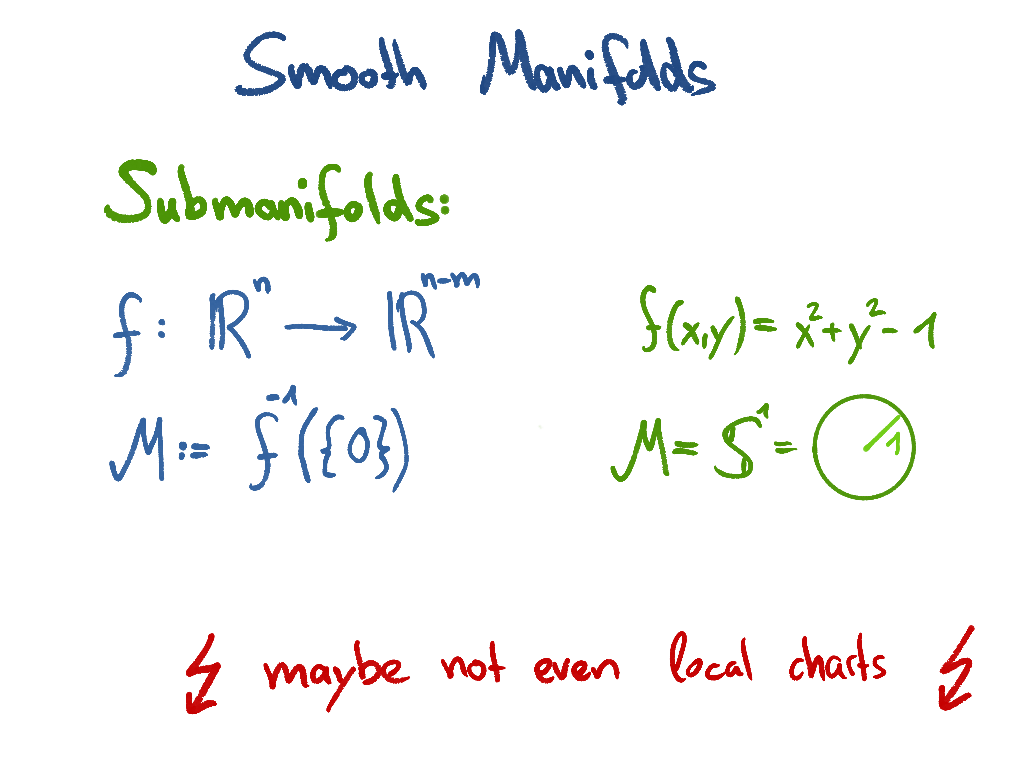 Smooth Manifolds
Submanifolds:
f: ℝⁿ → ℝⁿ⁻ᵐ
f(x,y) = x² + y² - 1
M := f⁻¹({0})
M = S¹ =
1
maybe not even local charts